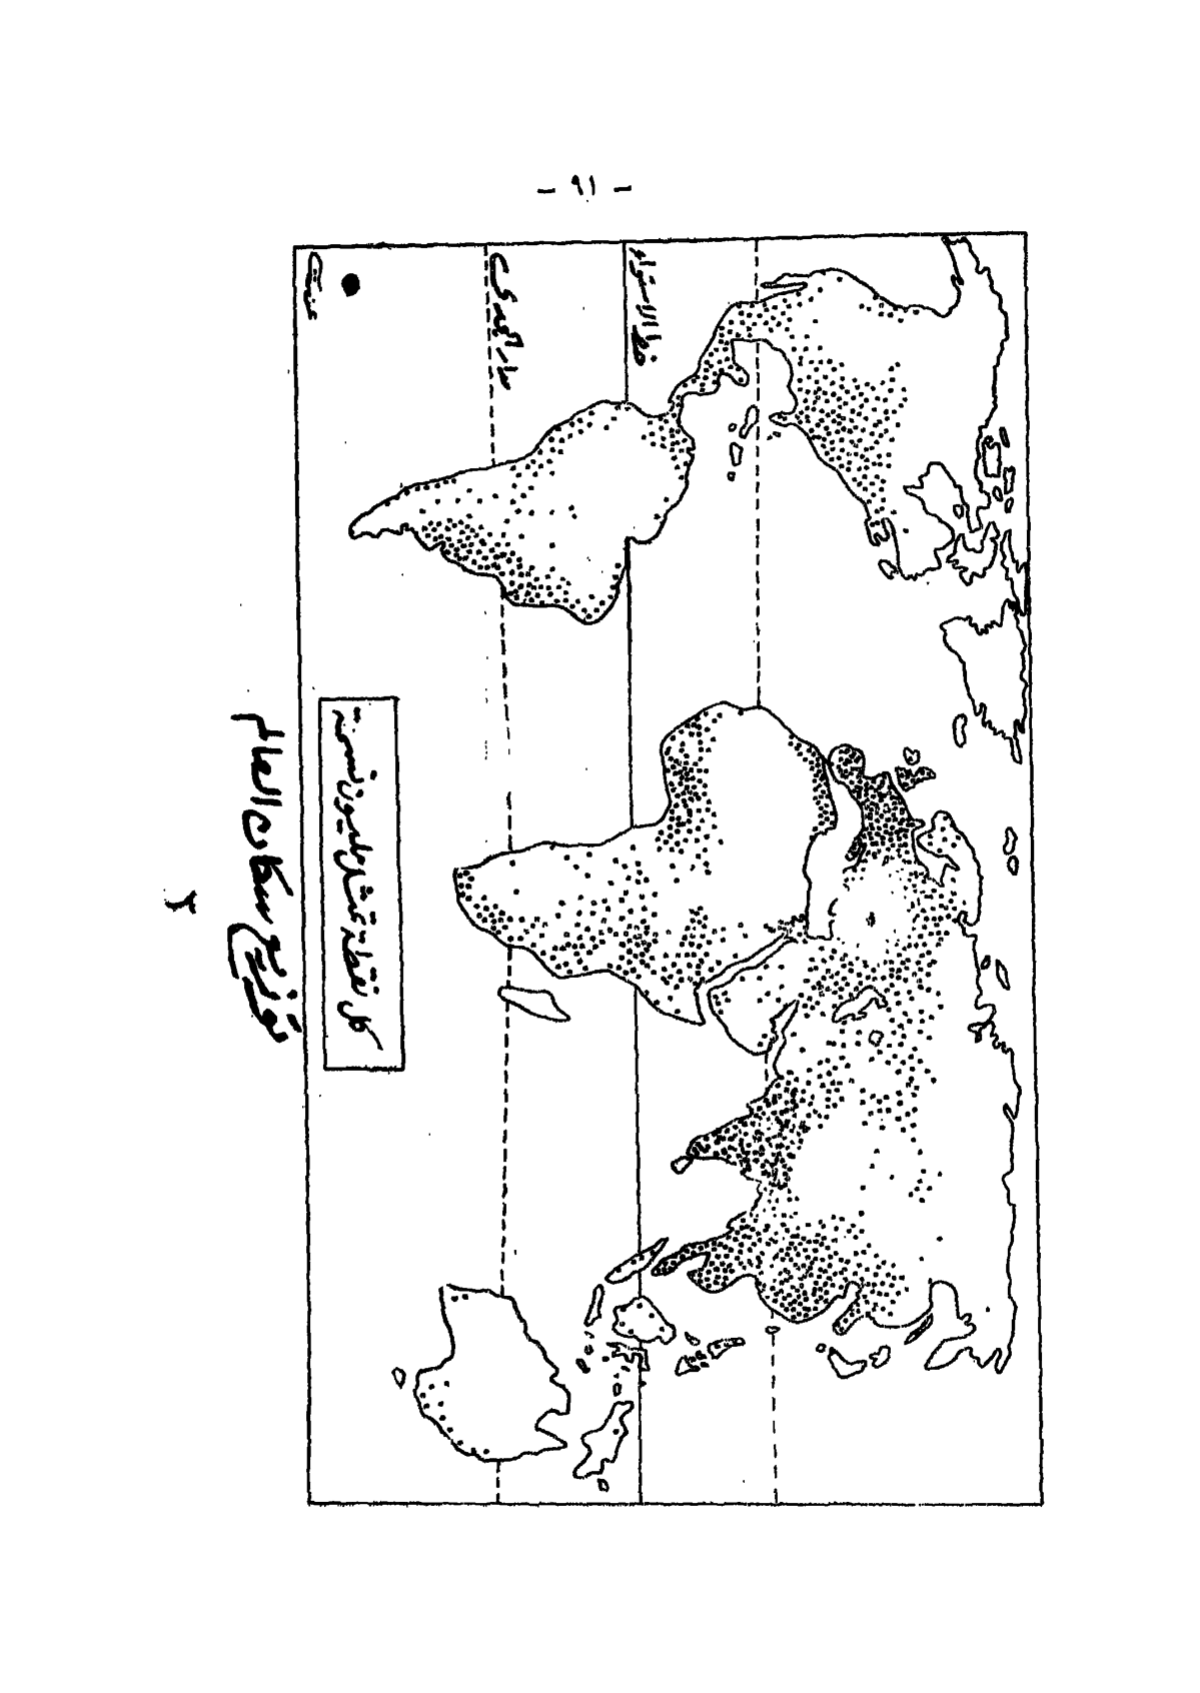 - ٩١ -
خط الاستواء
مدار الجدى
كل نقطة تمثل مليون نسمة
توزيع سكان العالم
٢